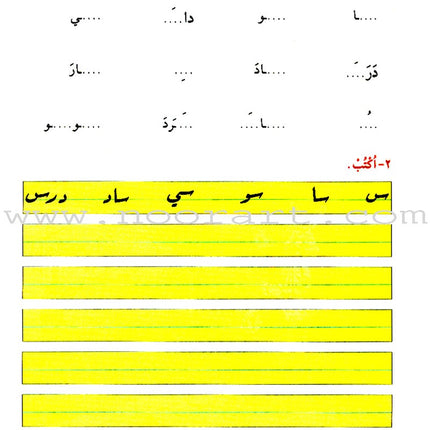 ....ـا ....ـو دا....َ ....ـي
دَرَ....َ ....ـادَ ....ِ ....ـارَ
....ُ ....ـا....َ ....َـرَدَ ....ـو....ـو
٢- اُكْتُبْ.
س سا سو سي ساد درس
www.noorart.com